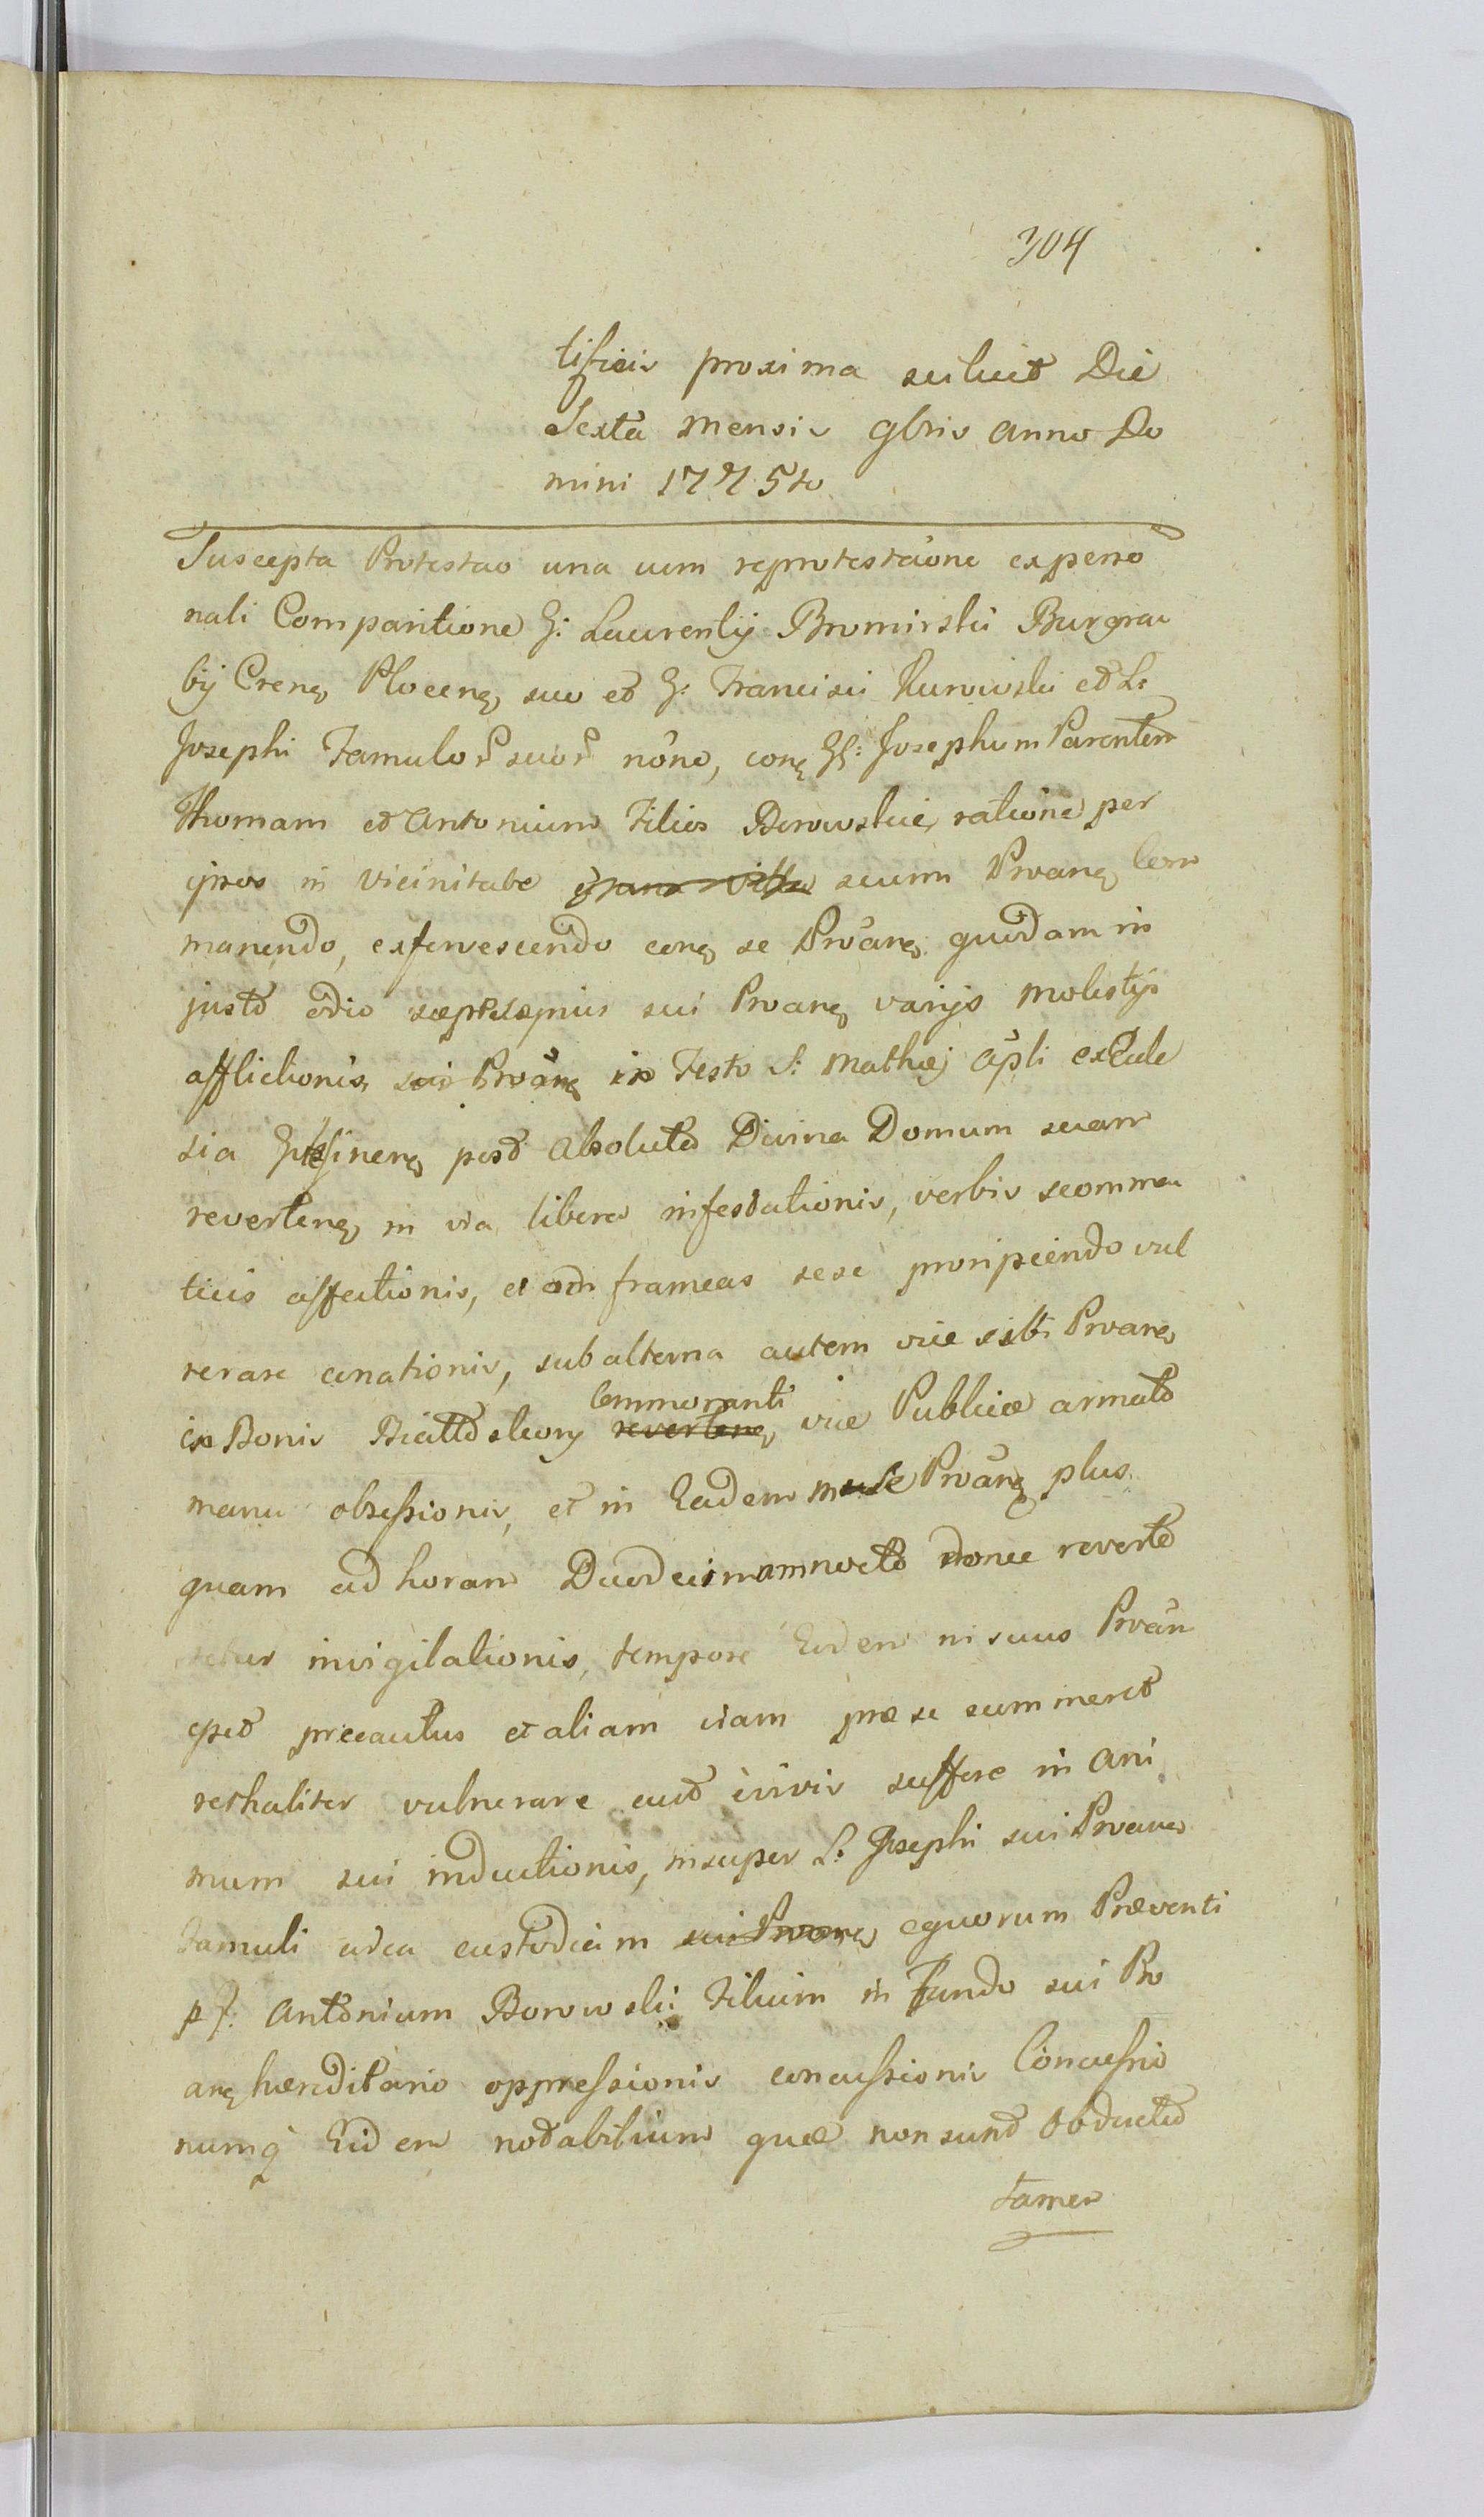 304
tificis proxima scilicet Die
Sexta Mensis 9bris Anno Do
mini 1775to
Suscepta Protestao una cum reprotestaone ex perso
nali Comparitione G: Laurentij Bromirski Burgra
bij Crens Plocens suo et G: Francisci Kurowski et L:
Josephi Famulor suor noīne, cong GG: Josephum Parentem
Thomam et Antonium Filios Borowskie ratione per
ipsos in Vicinitate villa suum Proang Com
manendo, exfervescendo cong se Proang quodam in
justo odio saepesaepius sui Proang varijs molestijs
afflictionis sui Proang in Festo S: Mathaej Apli ex Eccle
sia post absoluta Divina Domum suam
reverteng in via libera infestationis, verbis scomma
ticis affectionis, et ad frameas sese proripiendo vul
nerare conationis, subalterna autem vice sibi Proang
in Bonis revertens Commoranti viae Publicae armato
manu obsessionis, et in Eadem Proang plus
quam ad horam Duodecimam nocte donec reverte
retur invigilationis, tempore Eodem ni suus Proan
esset precautus et aliam viam prae se summeret
lethaliter vulnerare aut suffere in ani
mum sui inductionis, insuper L: Josephi sui Proang
Famuli circa custodiam sui Proang equorum Praeventi
p G: Antonium Borowski Filium in Fundo sui Pro
ang haereditario oppressionis concussionis Concussio
numq Eidem notabilium quae non sunt Obducta
tamen